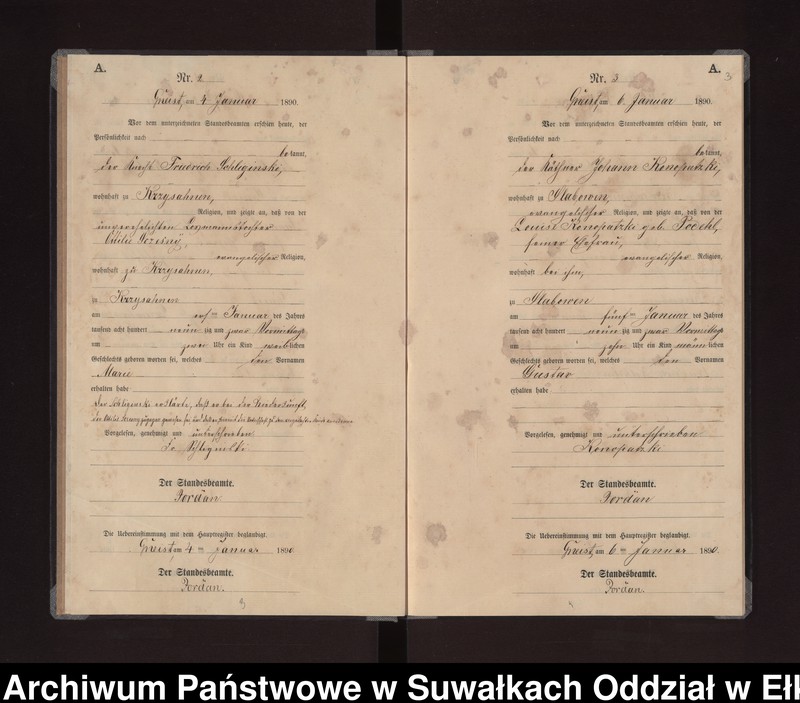 A.
Nr. 2
Gruest, am 4 Januar 1890.
Vor dem unterzeichneten Standesbeamten erschien heute, der
Persönlichkeit nach
bekannt,
der Knecht Friedrich
wohnhaft zu Krzysahnen,
Religion, und zeigte an, daß von der
unverehelichten
Ottilie
evangelischer Religion,
wohnhaft zu Krzysahnen,
zu Krzysahnen
am ersten Januar des Jahres
tausend acht hundert neunzig und zwar Vormittags
um zwei Uhr ein Kind weiblichen
Geschlechts geboren worden sei, welches den Vornamen
Marie
erhalten habe
erklärte, daß er bei der Niederkunft,
der Ottilie zugegen gewesen sei
Vorgelesen, genehmigt und unterschrieben
Fr.
Der Standesbeamte.
Jordan
Die Uebereinstimmung mit dem Hauptregister beglaubigt.
Gruest, am 4 ten Januar 1890.
Der Standesbeamte.
Jordan.
A.
3
Nr. 3
Gruest, am 6. Januar 1890.
Vor dem unterzeichneten Standesbeamten erschien heute, der
Persönlichkeit nach
bekannt,
der Käthner Johann Konopatzki,
wohnhaft zu Slabowen,
evangelischer Religion, und zeigte an, daß von der
Louise Konopatzki geb.
seiner Ehefrau,
evangelischer Religion,
wohnhaft bei ihm,
zu Slabowen
am fünften Januar des Jahres
tausend acht hundert neunzig und zwar Vormittags
um zehn Uhr ein Kind männlichen
Geschlechts geboren worden sei, welches den Vornamen
Gustav
erhalten habe
Vorgelesen, genehmigt und unterschrieben
Konopatzki
Der Standesbeamte.
Jordan
Die Uebereinstimmung mit dem Hauptregister beglaubigt.
Gruest, am 6 ten Januar 1890.
Der Standesbeamte.
Jordan.
Archiwum Państwowe w Suwałkach Oddział w Ełk